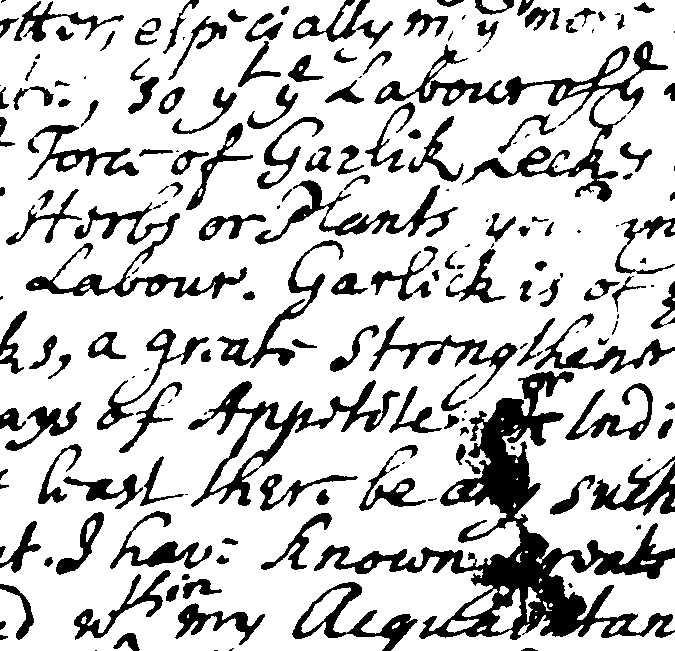 otter, especially in yͤ more
so yͭ yͤ Labour of yͤ
Force of Garlick Leeks
Herbs or Plants
Labour. Garlick is of
ks, a greate Strengthener
ays of Appetite or Indi
least there be any such
t. I have known greate
ed wͭʰin my Acquaintan